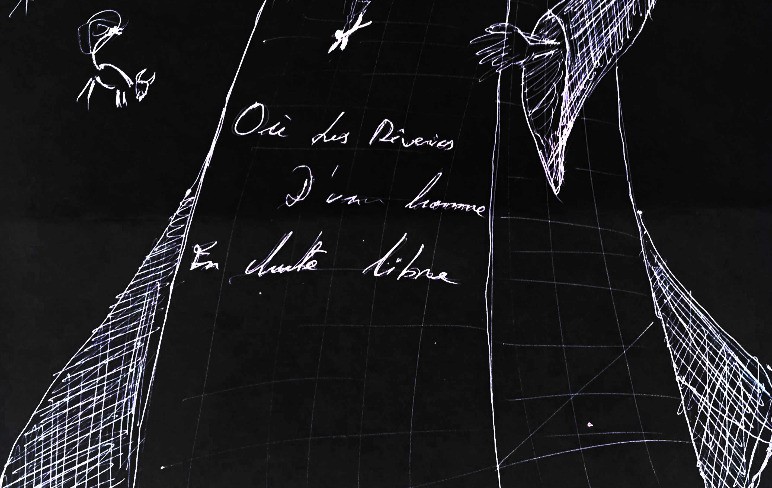 Où Les Rêveries
D'un homme
En chute libre